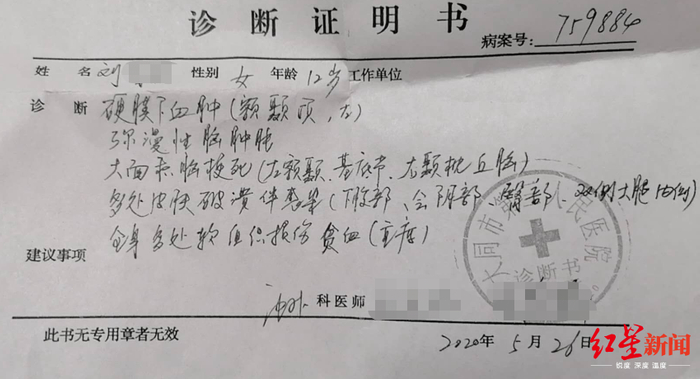 诊断证明书
病案号: 759884
姓名 刘 性别 女 年龄 12岁 工作单位
诊断 硬膜下血肿(额颞顶,左)
弥漫性脑肿胀
大面积脑梗死(左额颞、基底节、右颞枕丘脑)
多处皮肤破溃伴感染(下腹部、会阴部、臀部、双侧大腿内侧)
全身多处软组织损伤 贫血(重度)
建议事项
科医师
大同市 民医院
诊断书
此书无专用章者无效
2020年5月26日
红星新闻
锐度 深度 温度